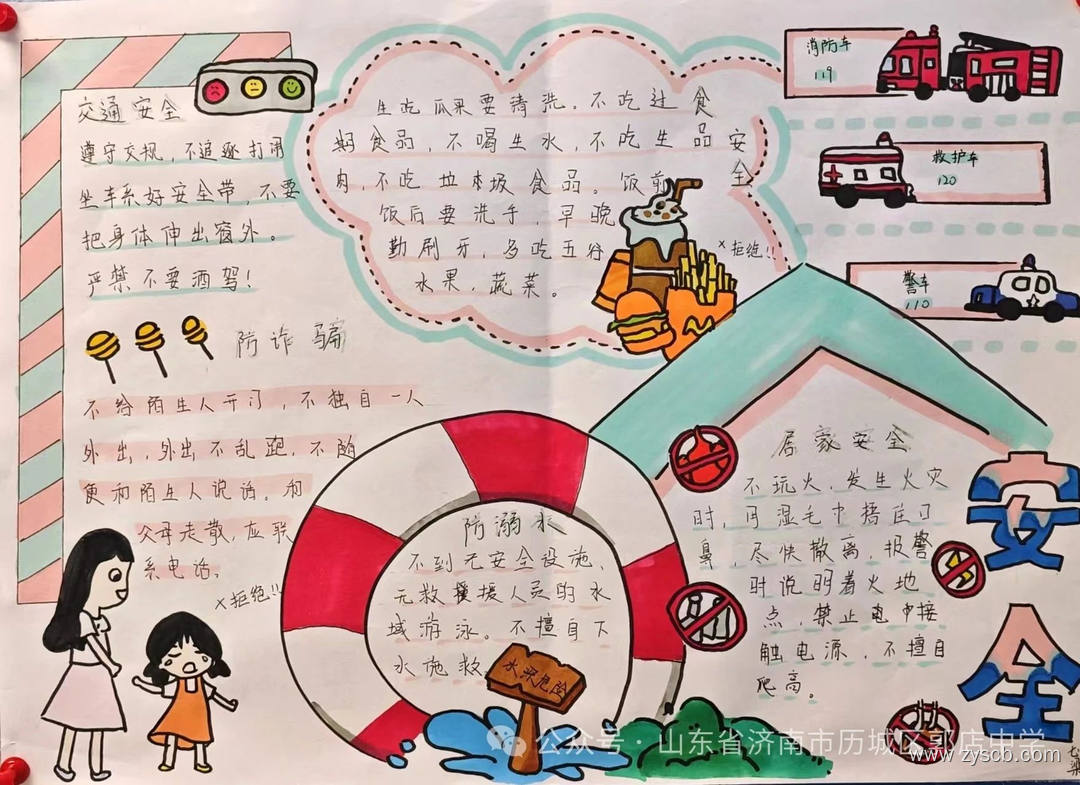 交通安全
遵守交规，不追逐打闹
坐车系好安全带，不要
把身体伸出窗外。
严禁不要酒驾！
生吃瓜果要清洗，不吃过
期食品，不喝生水，不吃生
肉，不吃垃圾食品。饭前
饭后要洗手，早晚
勤刷牙，多吃五谷
水果，蔬菜。
食
品安
全
×拒绝!!
消防车
119
救护车
120
警车
110
防诈骗
不给陌生人开门，不独自一人
外出，外出不乱跑，不随
便和陌生人说话。和
父母走散，应联
系电话。
×拒绝!!
防溺水
不到无安全设施、
无救援人员的水
域游泳。不擅自下
水施救。
水深危险
居家安全
不玩火，发生火灾
时，用湿毛巾捂住口
鼻，尽快撤离，报警
时说明着火地
点，禁止电中接
触电源，不擅自
爬高。
安
全
公众号·山东省济南市历城区郭店中学
www.zyscb.com